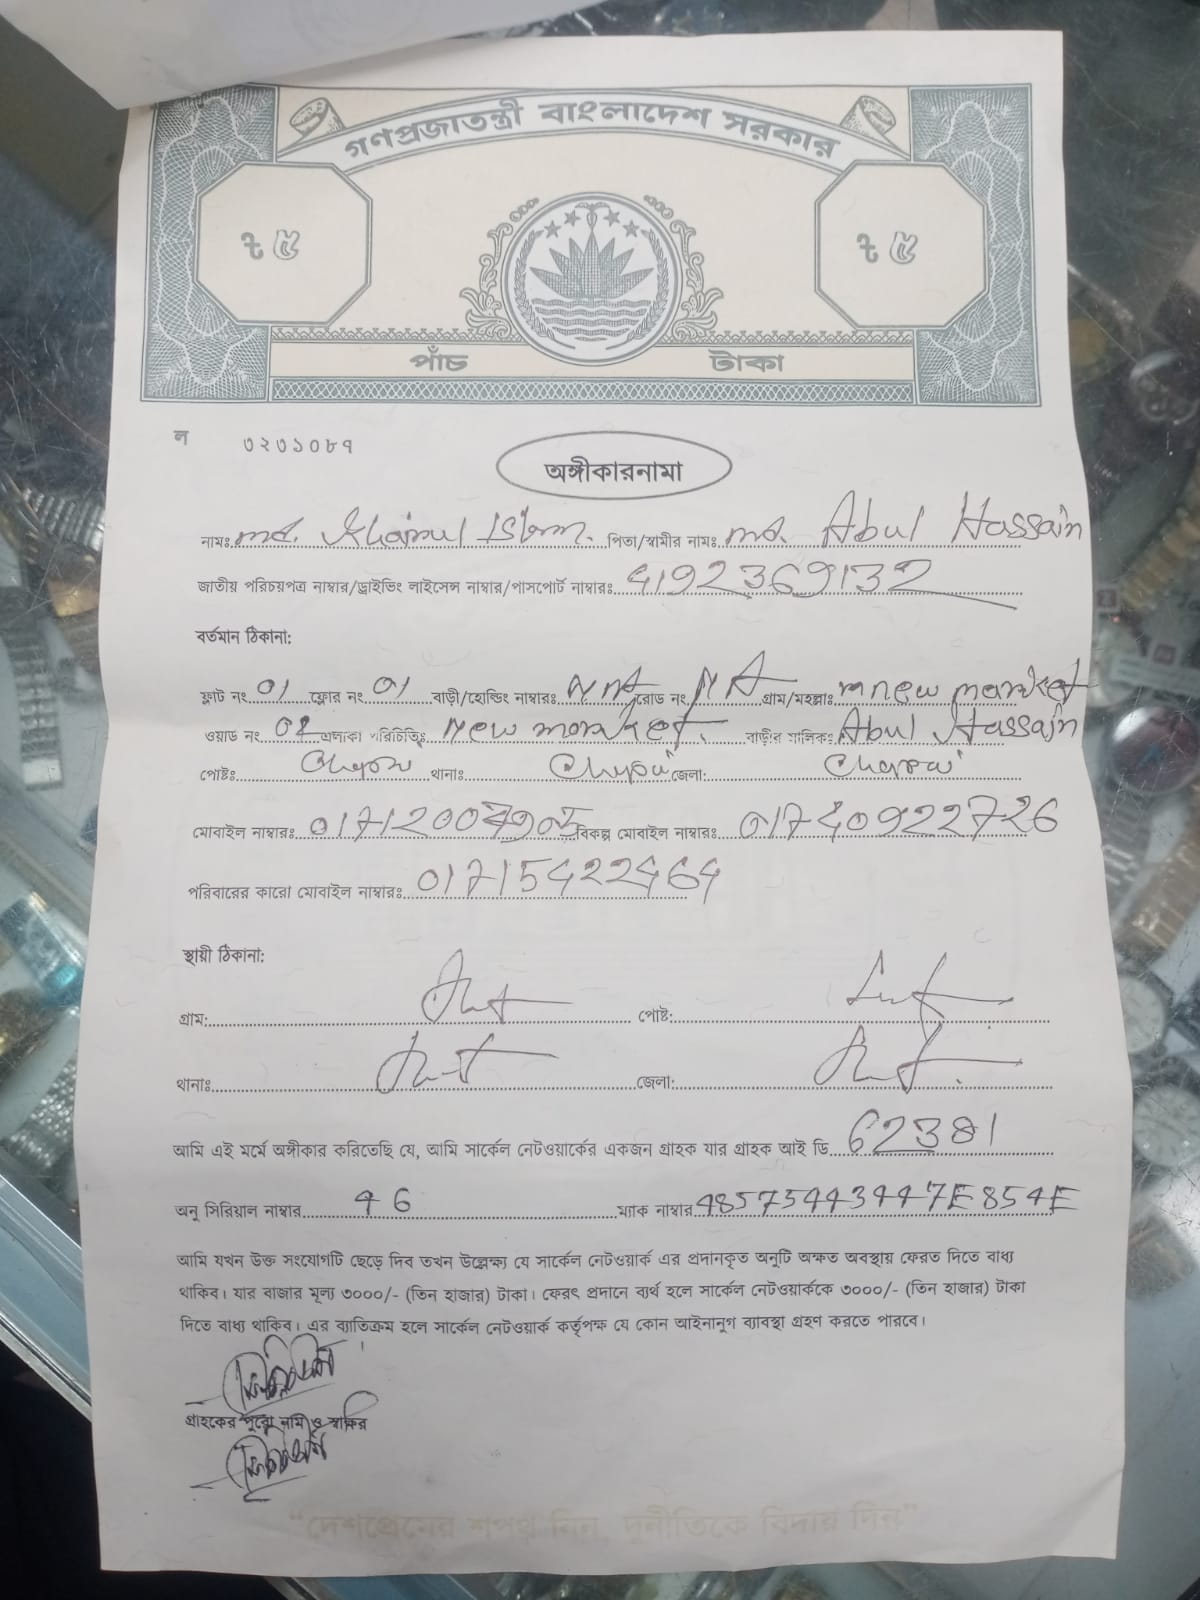 গণপ্রজাতন্ত্রী বাংলাদেশ সরকার
৳ ৫ ৳ ৫
পাঁচ টাকা
ল ৩২৩১০৮৭
অঙ্গীকারনামা
নামঃ md. Khairul Islam. পিতা/স্বামীর নামঃ md. Abul Hassain
জাতীয় পরিচয়পত্র নাম্বার/ড্রাইভিং লাইসেন্স নাম্বার/পাসপোর্ট নাম্বারঃ 4192369132
বর্তমান ঠিকানা:
ফ্লাট নং 01 ফ্লোর নং 01 বাড়ী/হোল্ডিং নাম্বারঃ NA রোড নং NA গ্রাম/মহল্লাঃ new market
ওয়াড নং 02 এলাকা পরিচিতিঃ New market. বাড়ীর মালিকঃ Abul Hassain
পোষ্টঃ থানাঃ জেলা:
মোবাইল নাম্বারঃ বিকল্প মোবাইল নাম্বারঃ
পরিবারের কারো মোবাইল নাম্বারঃ 01715422464
স্থায়ী ঠিকানা:
গ্রাম: পোষ্ট:
থানাঃ জেলা:
আমি এই মর্মে অঙ্গীকার করিতেছি যে, আমি সার্কেল নেটওয়ার্কের একজন গ্রাহক যার গ্রাহক আই ডি 62381
অনু সিরিয়াল নাম্বার 46 ম্যাক নাম্বার 48575443447E854E
আমি যখন উক্ত সংযোগটি ছেড়ে দিব তখন উল্লেক্ষ্য যে সার্কেল নেটওয়ার্ক এর প্রদানকৃত অনুটি অক্ষত অবস্থায় ফেরত দিতে বাধ্য
থাকিব। যার বাজার মূল্য ৩০০০/- (তিন হাজার) টাকা। ফেরৎ প্রদানে ব্যর্থ হলে সার্কেল নেটওয়ার্ককে ৩০০০/- (তিন হাজার) টাকা
দিতে বাধ্য থাকিব। এর ব্যাতিক্রম হলে সার্কেল নেটওয়ার্ক কর্তৃপক্ষ যে কোন আইনানুগ ব্যাবস্থা গ্রহণ করতে পারবে।
গ্রাহকের পুরো নাম ও স্বাক্ষর
“দেশপ্রেমের শপথ নিন, দুর্নীতিকে বিদায় দিন”